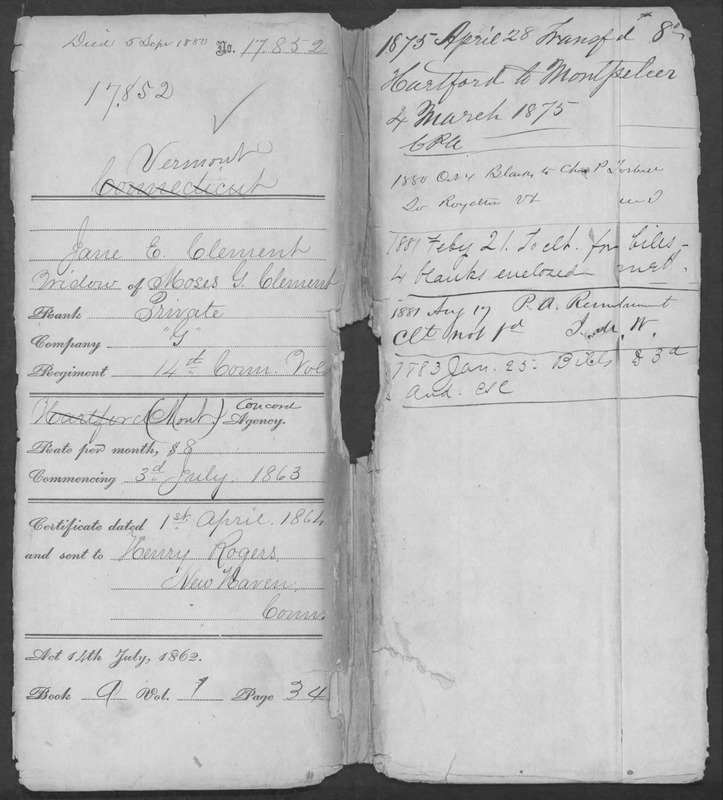 Died 5 Sep 1880 No. 17.852
17.852
Vermont
Connecticut
Jane E. Clement
Widow of Moses G. Clement
Rank Private
Company "G"
Regiment 14th Conn. Vols
Hartford (Mont.) Concord Agency.
Rate per month, $8
Commencing 3d July. 1863
Certificate dated 1st April. 1864
and sent to Henry Rogers,
New Haven,
Conn.
Act 14th July, 1862.
Book 9 Vol. 1 Page 34
1875 April 28 Transf'd
Hartford to Montpelier
4 March 1875
1880 Oct 4 Blanks to Chas P
So Royalton Vt
1881 Feby 21. To clt. for bills
4 blanks enclosed
1881 Aug 17 P. A. Reimbursement
Clt not pd
1883 Jan. 25. Bills to 3d
Aud.